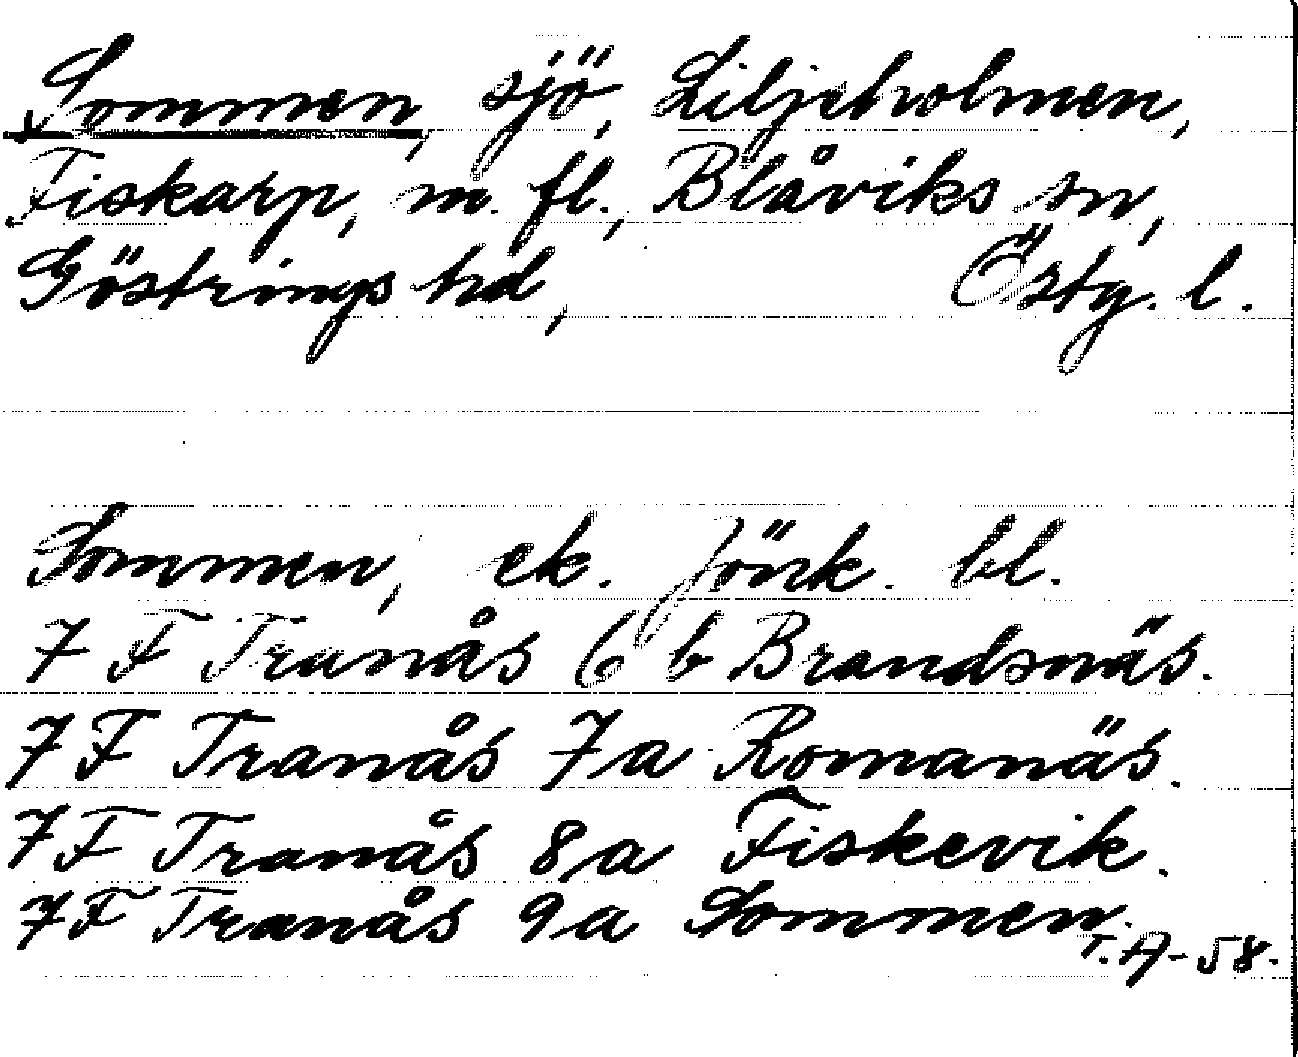 Sommen, sjö, Liljeholmen,
Fiskarp, m. fl., Blåviks sn,
Göstrings hd, Östg. l.
Sommen, ek. Jönk. bl.
7 F Tranås 6 b Brandsnäs.
7 F Tranås 7a Romanäs.
7 F Tranås 8a Fiskevik.
7 F Tranås 9a Sommen.
T. A-58.